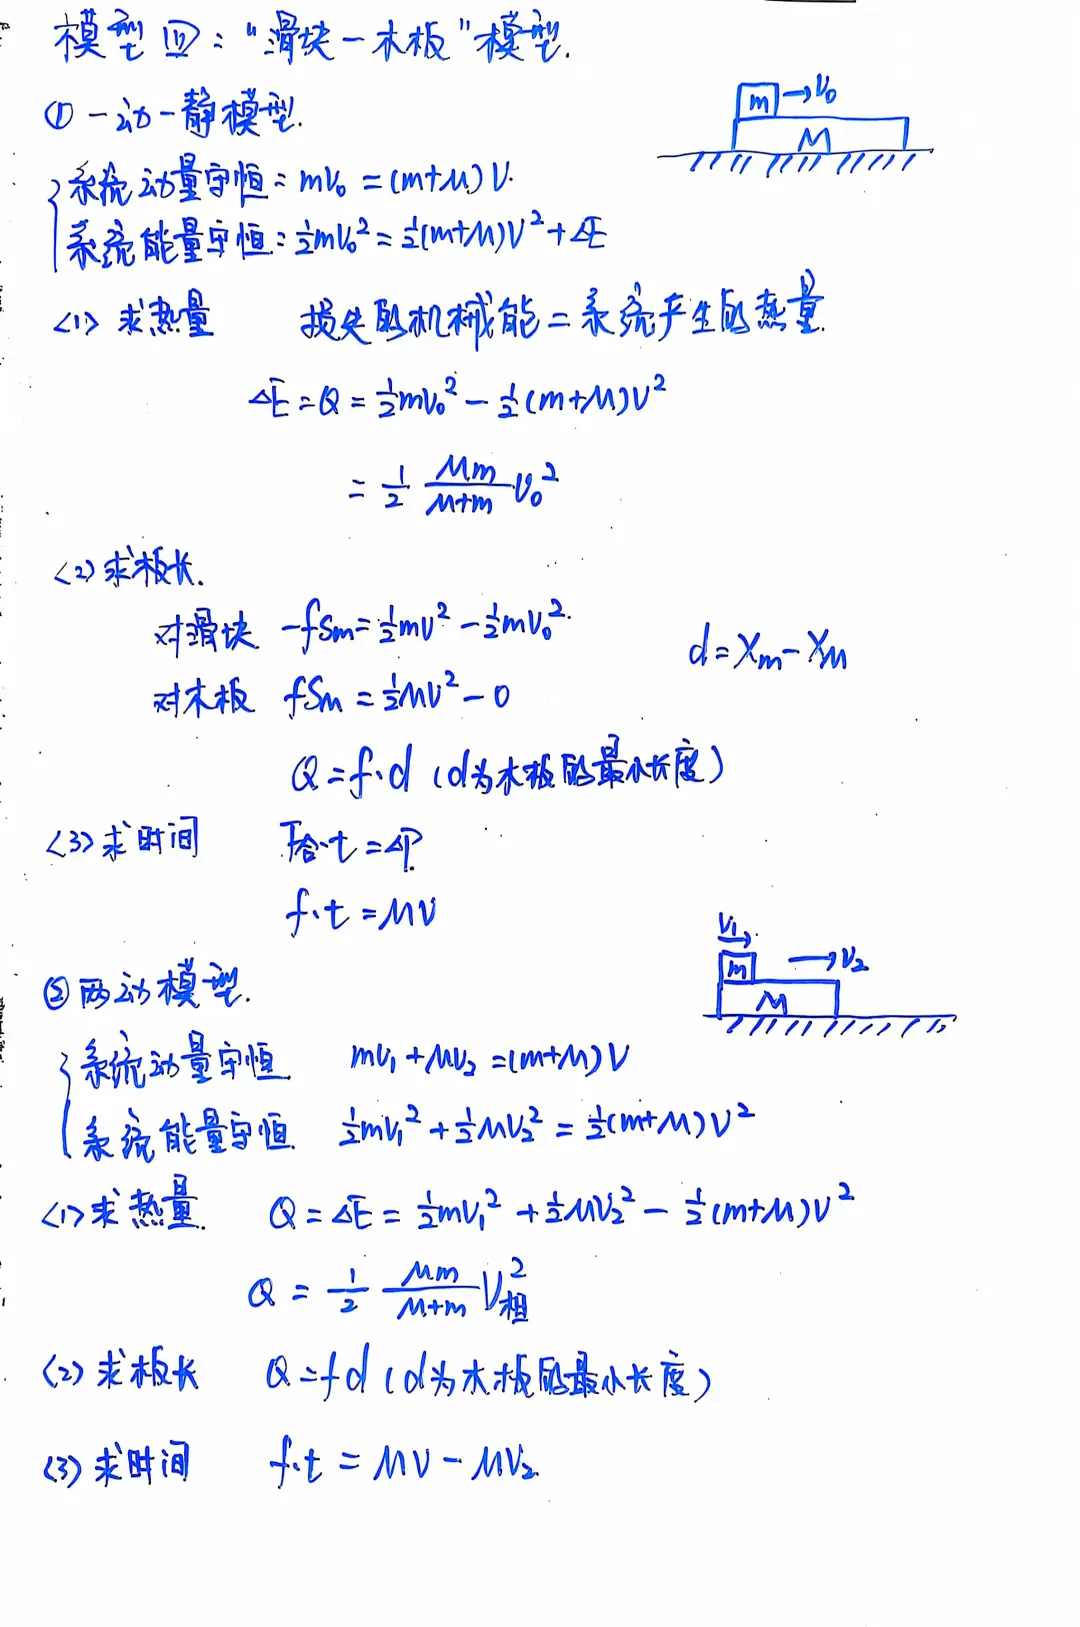 模型四："滑块-木板"模型.
①一动一静模型.
m →v₀
M
系统动量守恒: mv₀=(m+M)V.
系统能量守恒: ½mv₀²=½(m+M)V²+ΔE
<1> 求热量 损失的机械能=系统产生的热量.
ΔE=Q=½mv₀²-½(m+M)V²
=½ Mm/(M+m) v₀²
<2>求板长.
对滑块 -fSm=½mv²-½mv₀².
d=Xm-XM
对木板 fSm=½MV²-0
Q=f·d (d为木板的最小长度)
<3>求时间 F合·t=ΔP.
f·t=MV
V₁
②两动模型.
m →V₂
M
系统动量守恒. mv₁+MV₂=(m+M)V
系统能量守恒. ½mv₁²+½MV₂²=½(m+M)V²
<1>求热量. Q=ΔE=½mv₁²+½MV₂²-½(m+M)V²
Q=½ Mm/(M+m) V相²
<2>求板长 Q=fd (d为木板的最小长度)
<3>求时间 f·t=MV-MV₂.